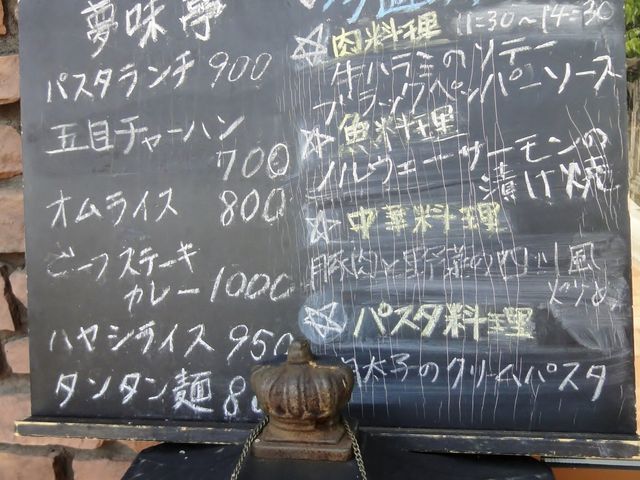 夢味亭
パスタランチ 900
五目チャーハン
700
オムライス 800
ビーフステーキ
カレー 1000
ハヤシライス 950
タンタン麺 8
11:30~14:30
☆肉料理
牛ハラミのソテー
ブラックペッパーソース
☆魚料理
ノルウェーサーモンの
漬け焼
☆中華料理
豚肉と野菜の四川風
炒め
☆パスタ料理
明太子のクリームパスタ